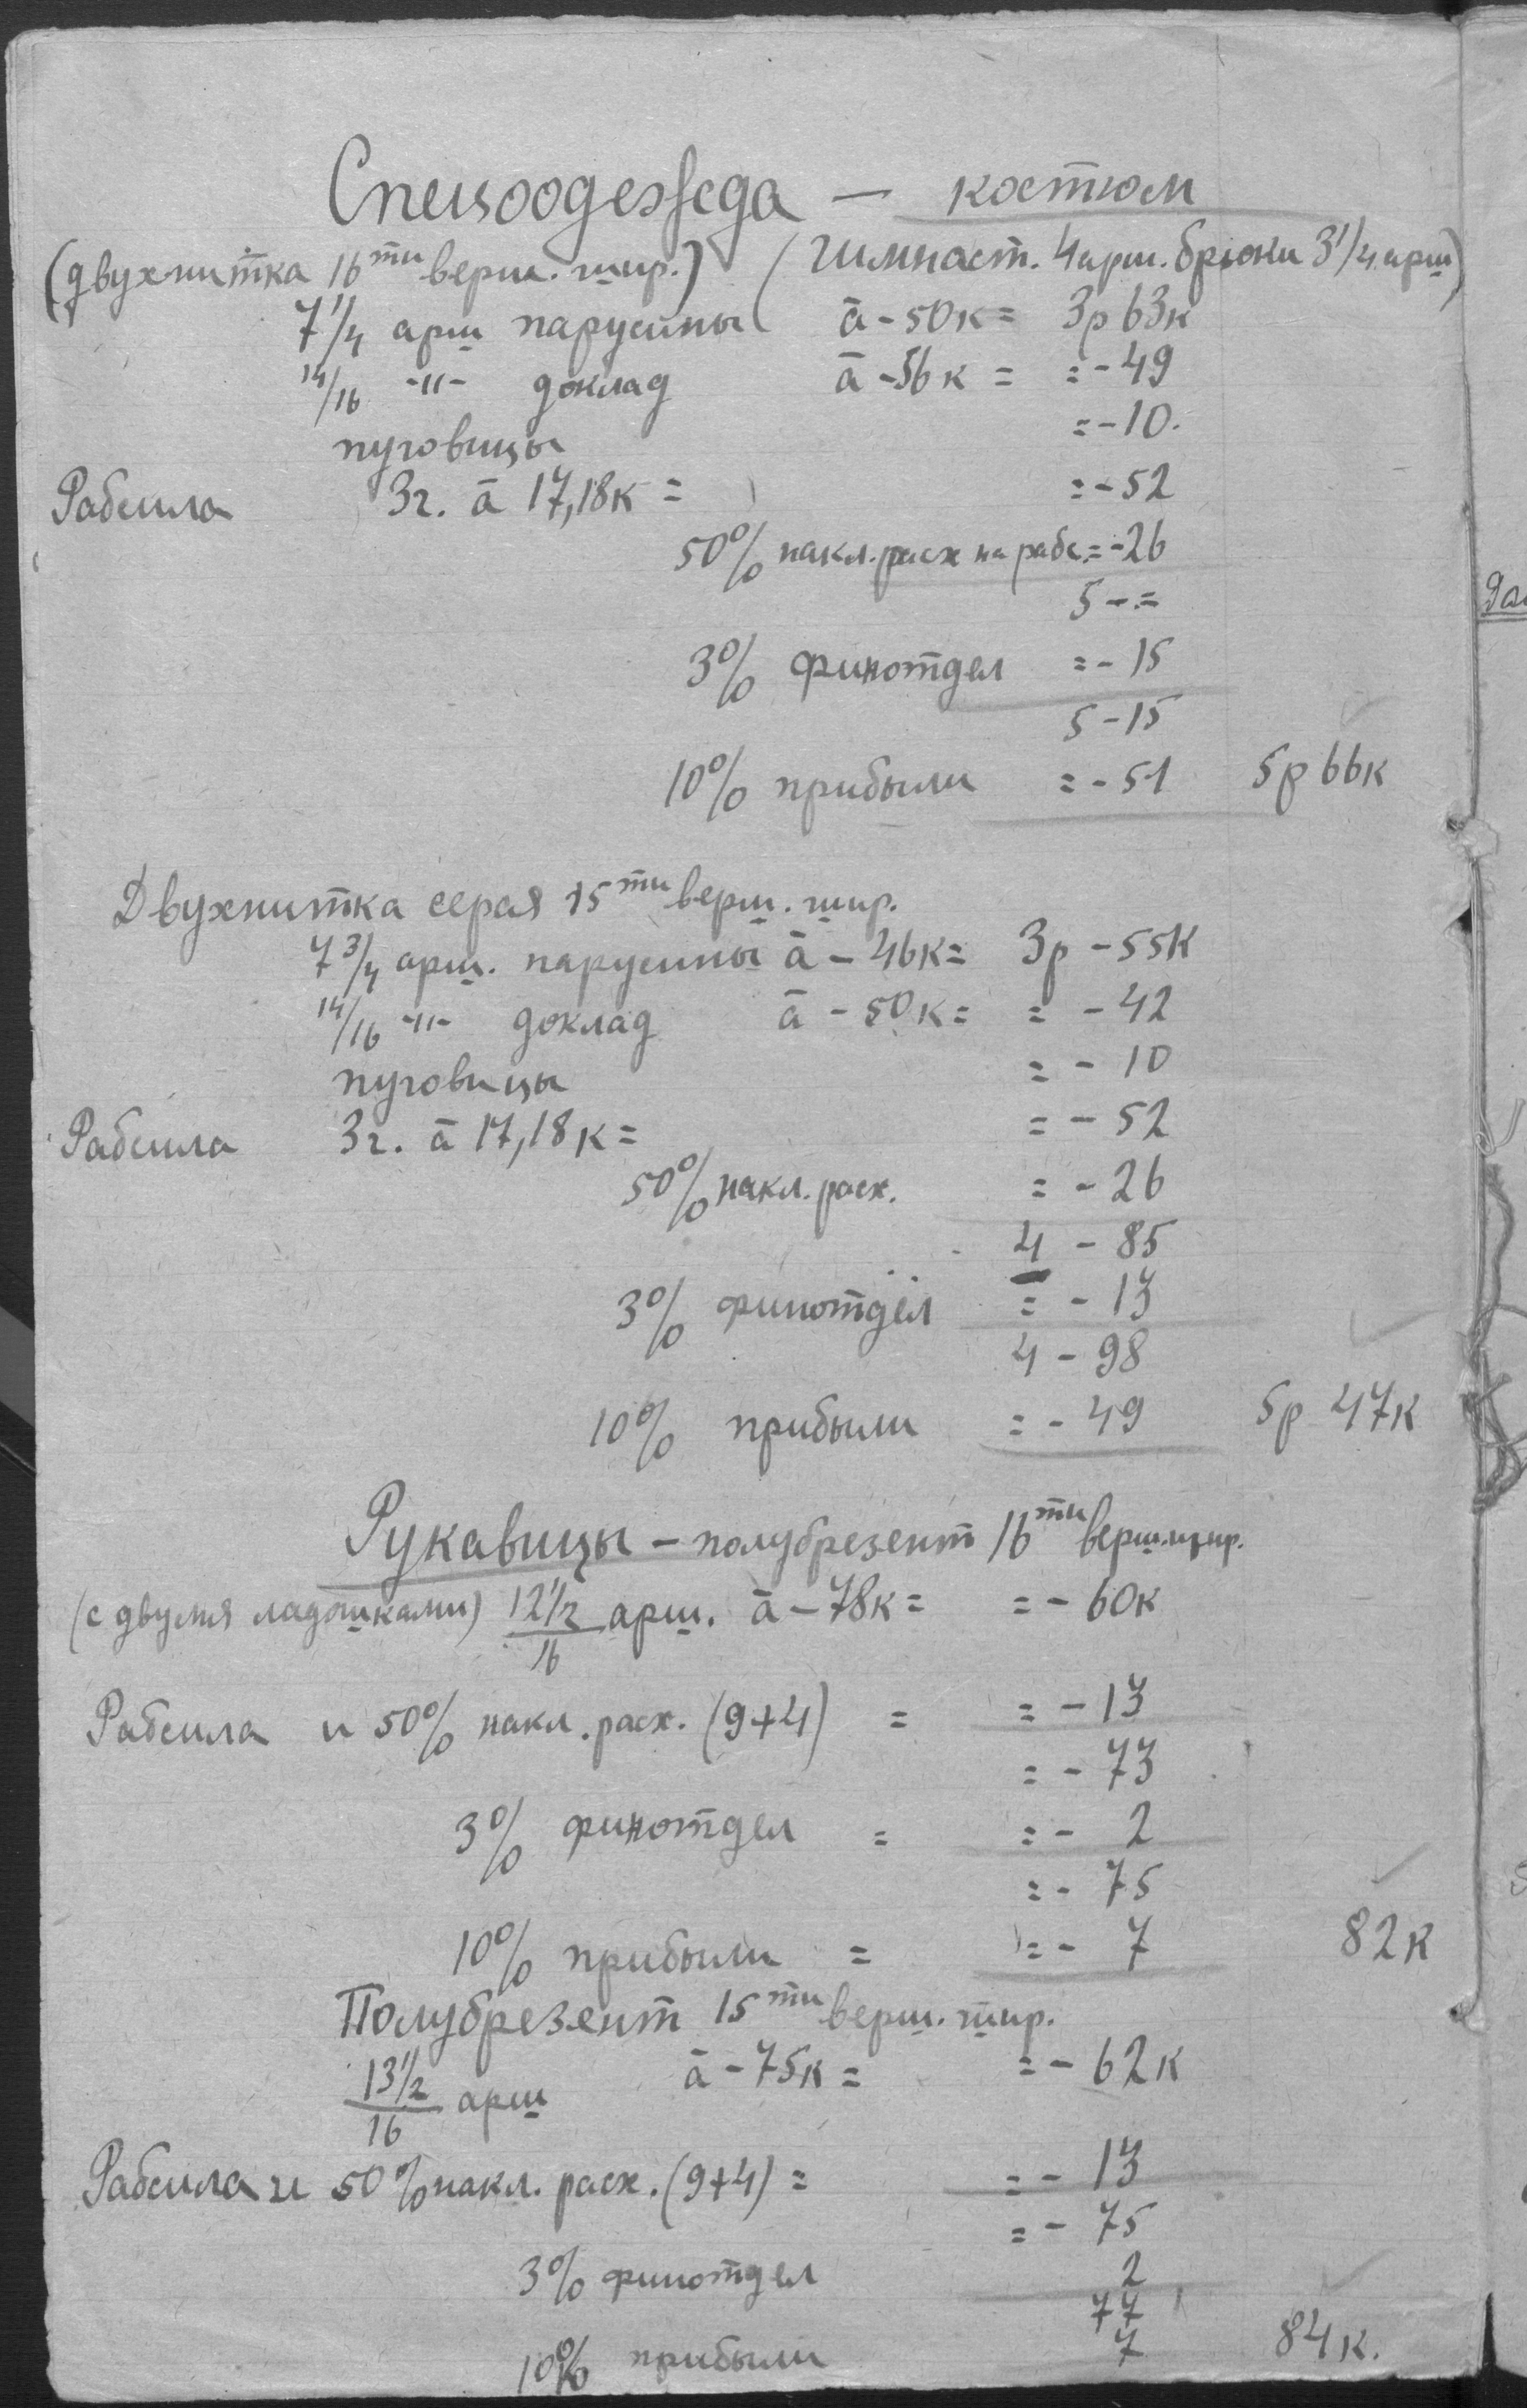 Спецоодежда — костюм
(двухнитка 16ти верш. шир.) (Гимнаст. 4 арш. брюки 3 1/4 арш)
7 1/4 арш парусины а̄ - 50к = 3р 63к
14/16 -"- доклад а̄ - 56к = = - 49
пуговицы = - 10.
Рабсила 3г. а̄ 17,18к = = - 52
50% накл. расх на рабс. = - 26
5 - =
3% финотдел = - 15
5 - 15
10% прибыли = - 51 5р 66к
Двухнитка серая 15ти верш. шир.
7 3/4 арш. парусины а̄ - 46к = 3р - 55к
14/16 -"- доклад а̄ - 50к = = - 42
пуговицы = - 10
Рабсила 3г. а̄ 17,18к = = - 52
50% накл. расх. = - 26
4 - 85
3% финотдел = - 13
4 - 98
10% прибыли = - 49 5р 47к
Рукавицы - полубрезент 16ти верш. шир.
(с двумя ладошками) 12 1/2/16 арш. а̄ - 78к = = - 60к
Рабсила и 50% накл. расх. (9+4) = = - 13
= - 73
3% финотдел = = - 2
= - 75
10% прибыли = = - 7 82к
Полубрезент 15ти верш. шир.
13 1/2/16 арш а̄ - 75к = = - 62к
Рабсила и 50% накл. расх. (9+4) = = - 13
= - 75
3% финотдел 2
77
10% прибыли 7 84к.